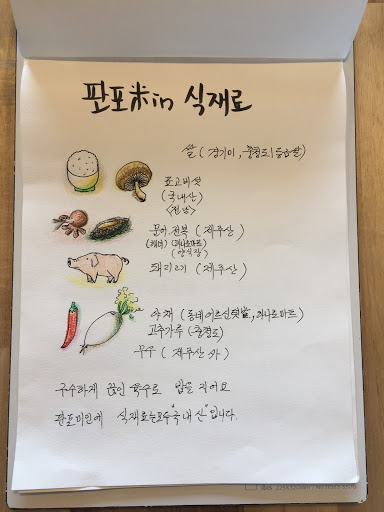 판포米in 식재료
쌀 ( 경기미, 충청도 | 혼합쌀)
표고버섯
(국내산)
<전남>
문어.전복 ( 제주산 )
(해녀) (하나로마트)
(양식장)
돼지고기 ( 제주산 )
야채 ( 동네어르신텃밭, 하나로마트)
고추가루 (충청도)
무우 ( 제주산
구수하게 끓인 육수로 밥을 지어요
판포미인에 식재료는 모두 "국내산" 입니다.